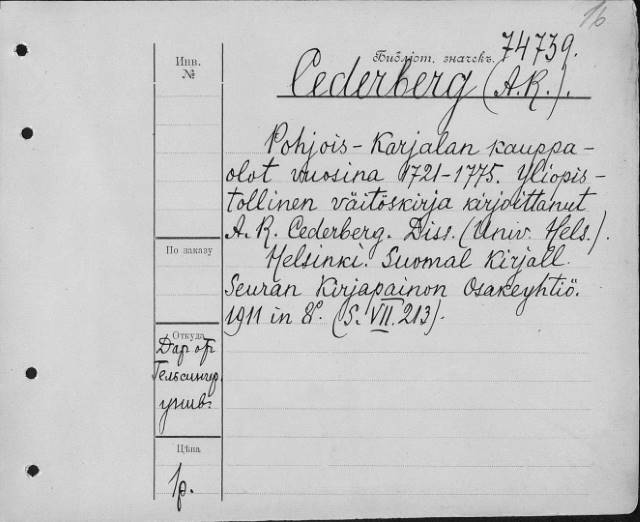 16
Инв.
№
Библіот. значекъ. 74739.
Cederberg (A.R.).
Pohjois-Karjalan kauppa-
olot vuosina 1721-1775. Yliopis-
tollinen väitöskirja kirjoittanut
A. R. Cederberg. Diss. (Univ. Hels.).
По заказу
Helsinki. Suomal. Kirjall.
Seuran Kirjapainon Osakeyhtiö.
1911 in 8°. (S. VII. 213).
Откуда
Дар от
Гельсингф.
унив.
Цѣна
1р.